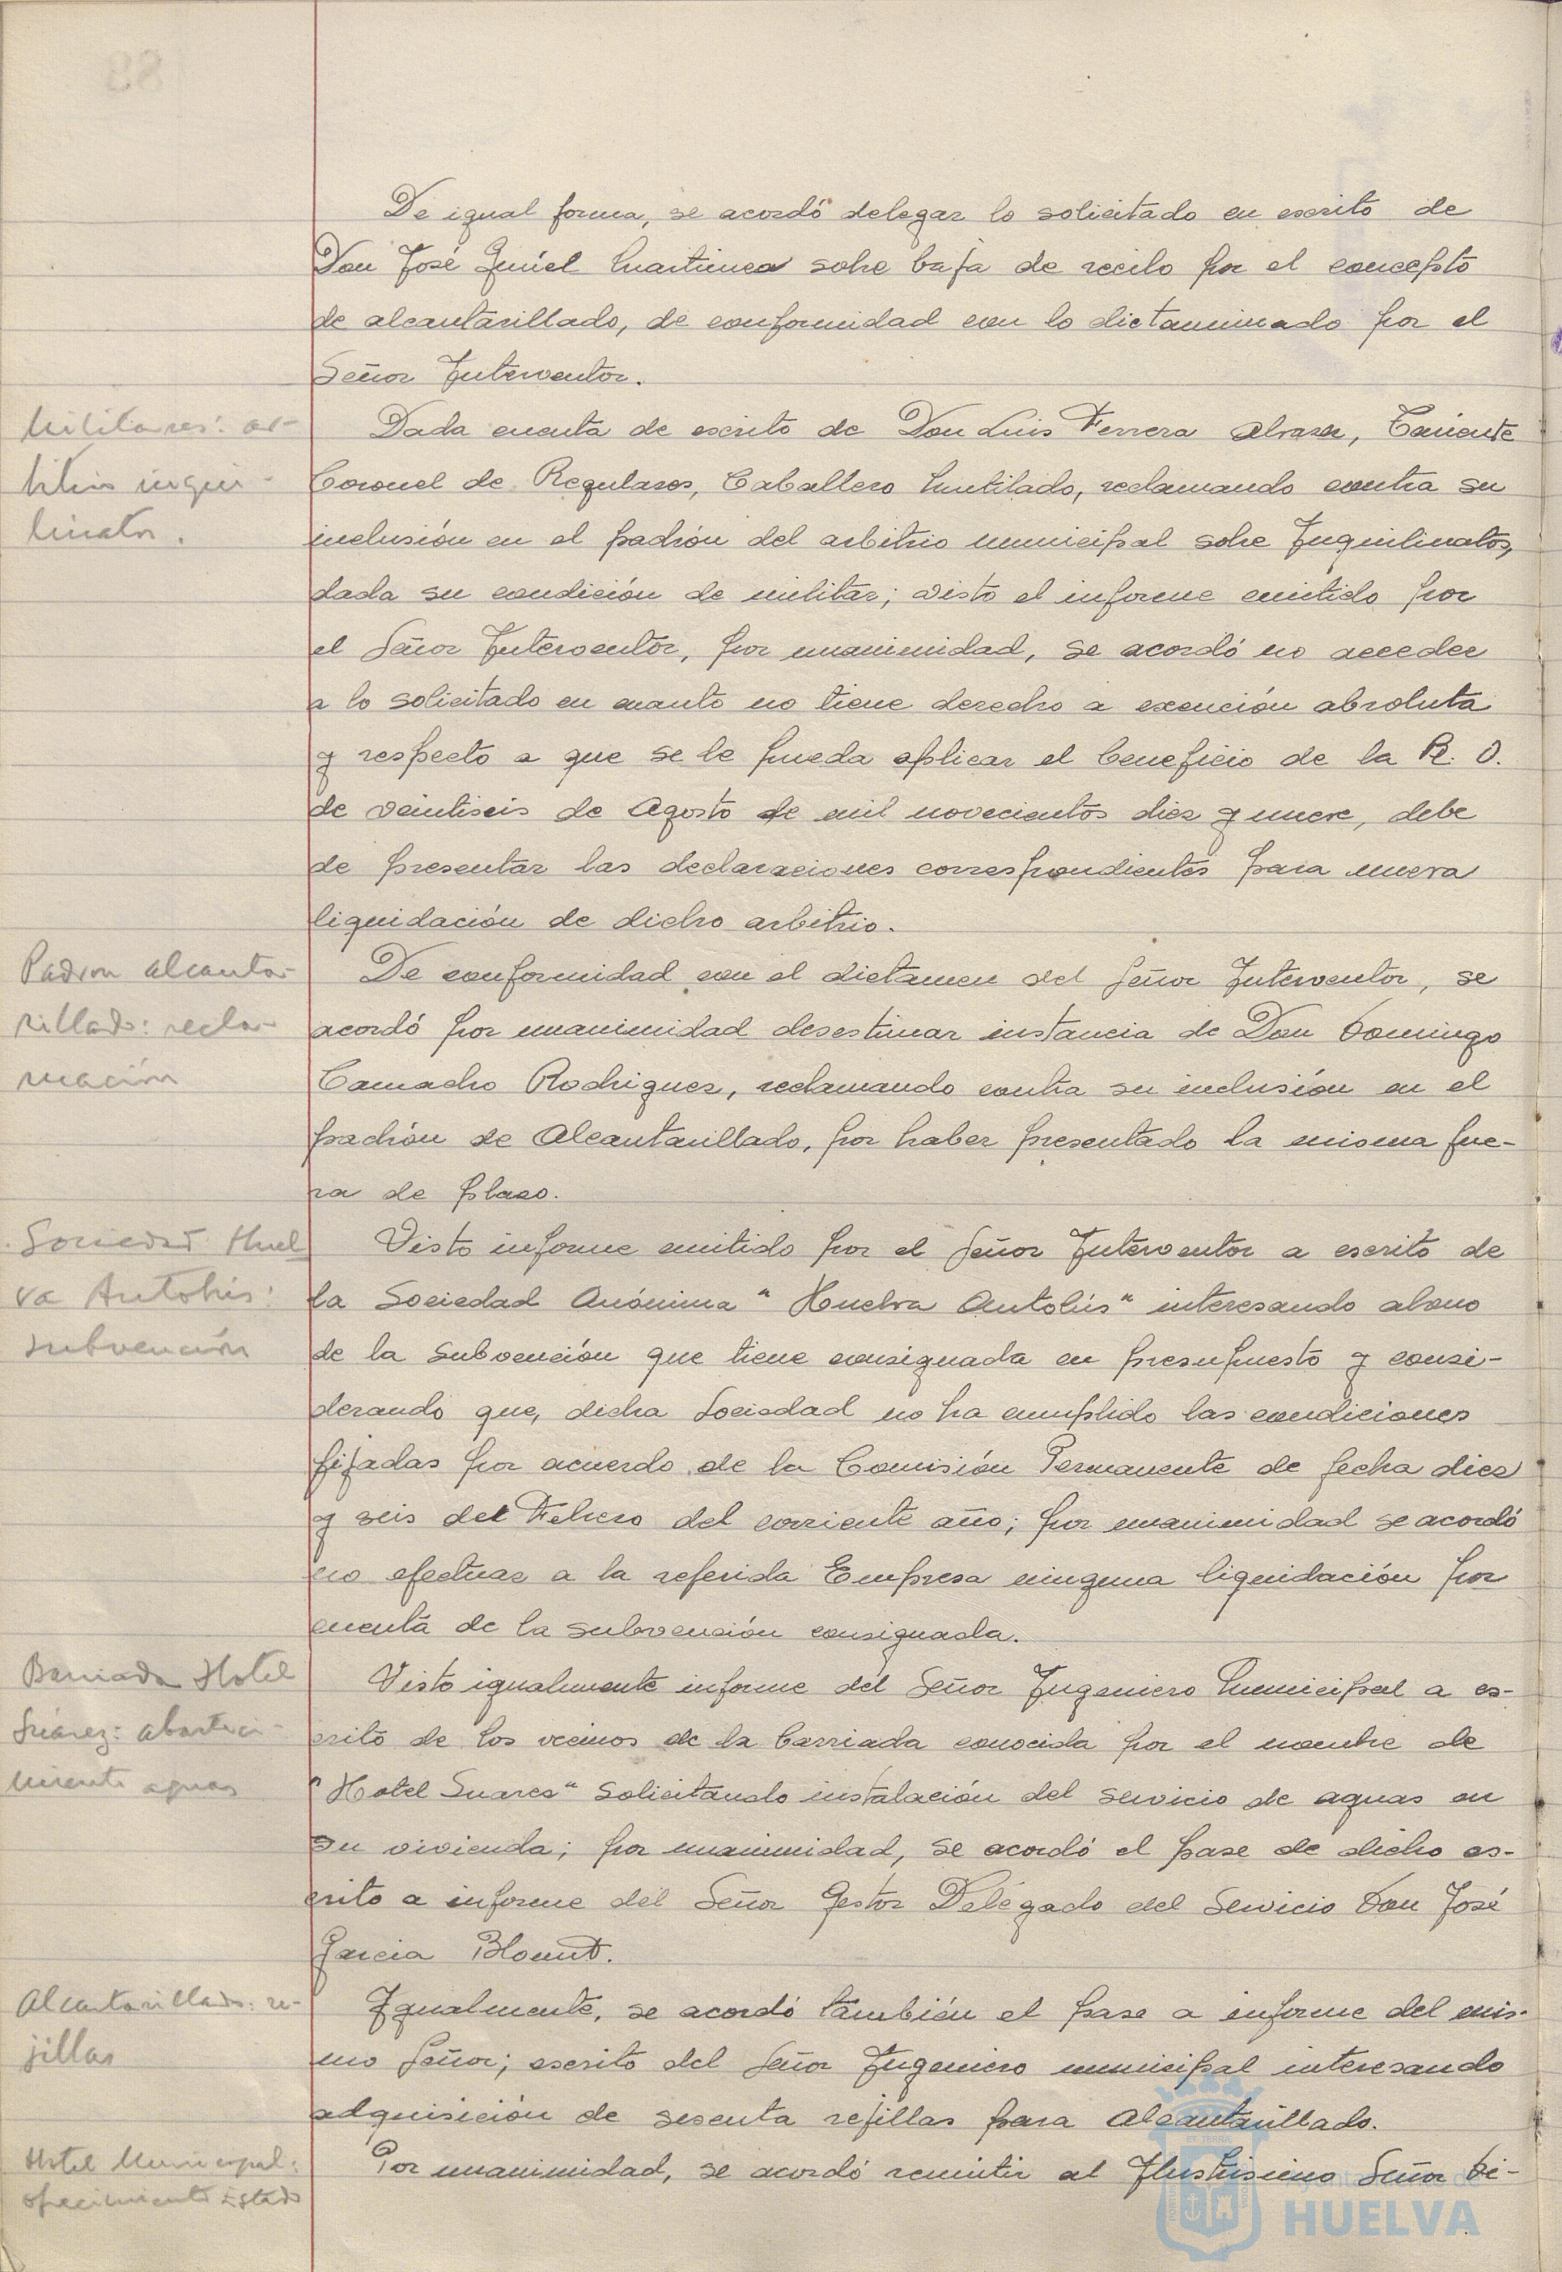 De igual forma, se acordó delegar lo solicitado en escrito de
Don José Martinez sobre baja de recibo por el concepto
de alcantarillado, de conformidad con lo dictaminado por el
Señor Interventor.
Militares: ar-
bitrio inqui-
linatos.
Dada cuenta de escrito de Don Luis Ferrera Alvarez, Teniente
Coronel de Regulares, Caballero Mutilado, reclamando contra su
inclusión en el padrón del arbitrio municipal sobre Inquilinatos,
dada su condición de militar; visto el informe emitido por
el Señor Interventor, por unanimidad, se acordó no acceder
a lo solicitado en cuanto no tiene derecho a exención absoluta
y respecto a que se le pueda aplicar el beneficio de la R. O.
de veintiseis de Agosto de mil novecientos diez y nueve, debe
de presentar las declaraciones correspondientes para nueva
liquidación de dicho arbitrio.
Padron alcanta-
rillado: recla-
mación
De conformidad con el dictamen del Señor Interventor, se
acordó por unanimidad desestimar instancia de Don Domingo
Camacho Rodriguez, reclamando contra su inclusión en el
padrón de Alcantarillado, por haber presentado la misma fue-
ra de plazo.
Sociedad Huel
va Autobús:
subvención
Visto informe emitido por el Señor Interventor a escrito de
la Sociedad Anónima "Huelva Autobús" interesando abono
de la Subvención que tiene consignada en presupuesto y consi-
derando que, dicha Sociedad no ha cumplido las condiciones
fijadas por acuerdo de la Comisión Permanente de fecha diez
y seis del Febrero del corriente año; por unanimidad se acordó
no efectuar a la referida Empresa ninguna liquidación por
cuenta de la subvención consignada.
Barriada Hotel
Suárez: abasteci-
miento aguas
Visto igualmente informe del Señor Ingeniero Municipal a es-
crito de los vecinos de la barriada conocida por el nombre de
"Hotel Suarez" solicitando instalación del servicio de aguas en
su vivienda; por unanimidad, se acordó el pase de dicho es-
crito a informe del Señor Gestor Delegado del Servicio Don José
Garcia
Alcantarillado: re-
jillas
Igualmente, se acordó también el pase a informe del mis-
mo Señor; escrito del Señor Ingeniero municipal interesando
adquisición de sesenta rejillas para Alcantarillado.
Hotel Municipal:
ofrecimiento Estado
Por unanimidad, se acordó remitir al Ilustrisimo Señor Di-
Ayuntamiento de
HUELVA